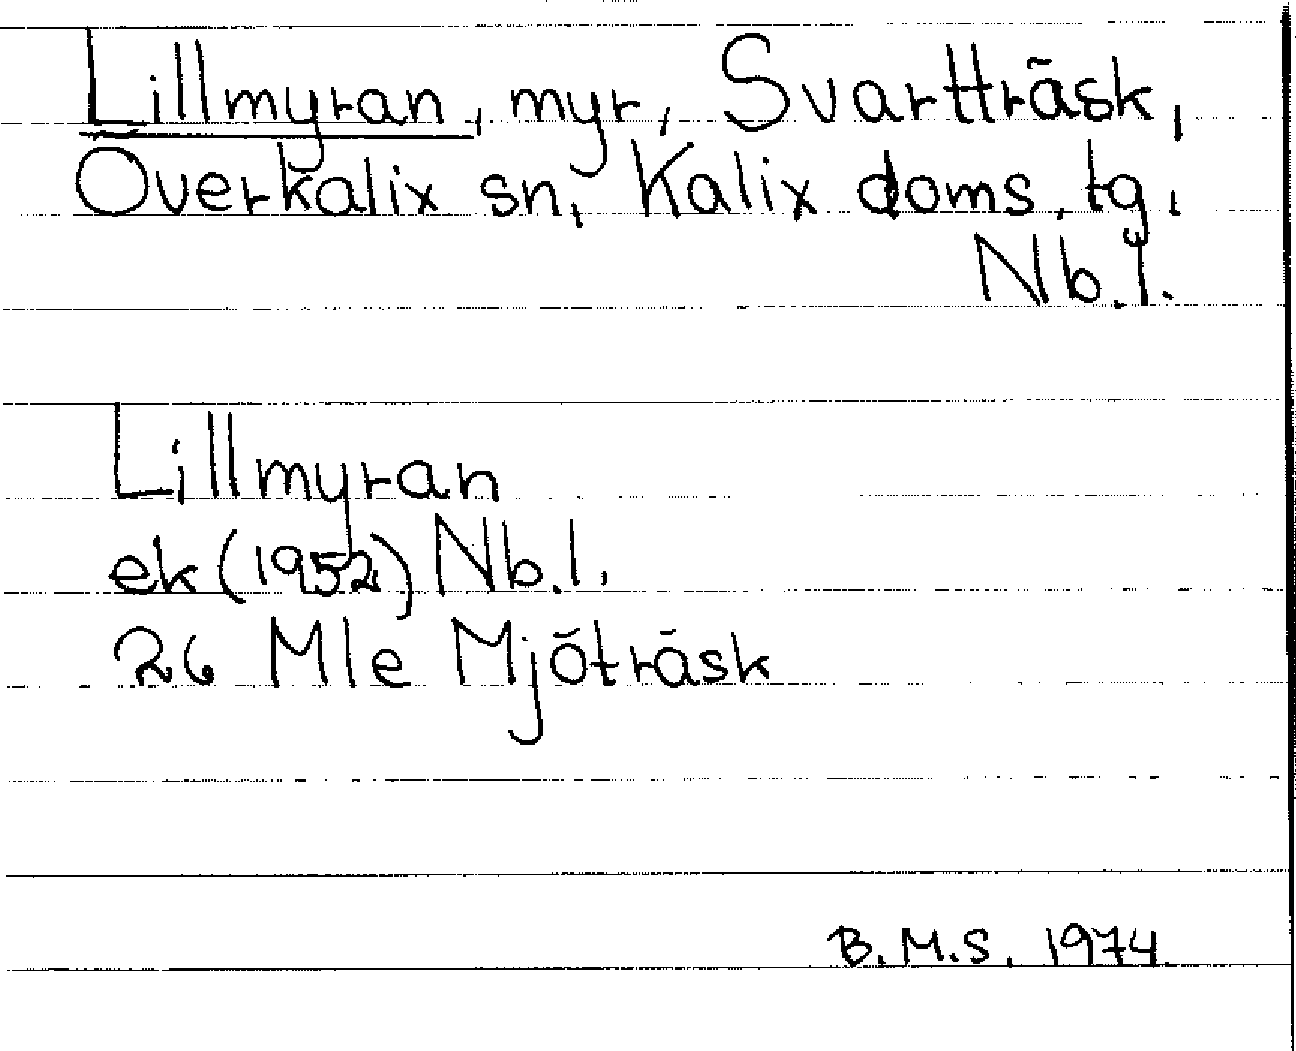 Lillmyran, myr, Svartträsk,
Överkalix sn, Kalix doms. tg,
Nb.l.
Lillmyran
ek (1952) Nb.l.
26 Mle Mjöträsk
B.M.S. 1974